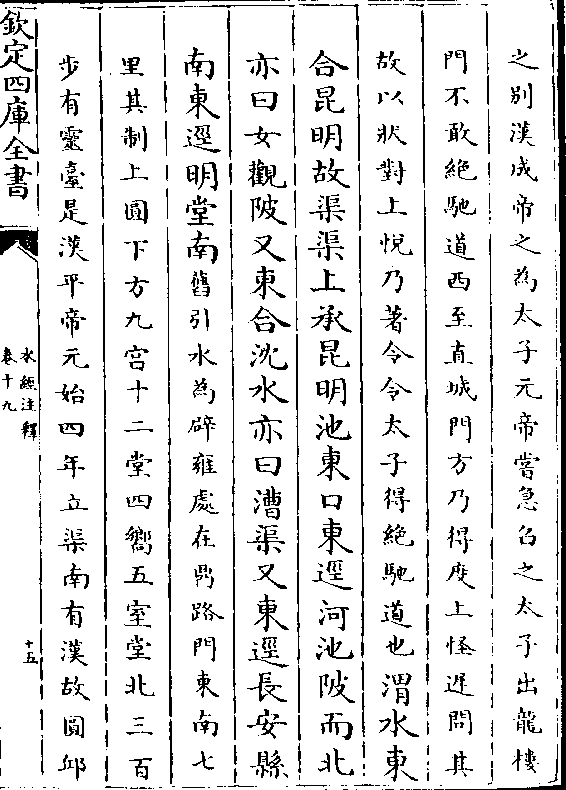 之别漢成帝之為太子元帝嘗急召之太子出龍樓
門不敢絶馳道西至直城門方乃得度上怪遲問其
故以狀對上悅乃著令令太子得絶馳道也渭水東
合昆明故渠渠上承昆明池東口東逕河池陂而北
亦曰女觀陂又東合沈水亦曰漕渠又東逕長安縣
南東逕明堂南舊引水為辟雍處在鼎路門東南七
里其制上圓下方九宫十二堂四嚮五室堂北三百
步有靈臺是漢平帝元始四年立渠南有漢故圓邱
欽定四庫全書
水經注釋
卷十九
十五